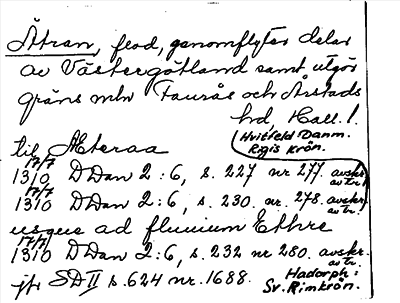 Ätran, flod, genomflyter delar
av Västergötland samt utgör
gräns mln Faurås och Årstads
hd, Hall.!
Hvitfeld Danm.
Regis Krön.
til Æteraa
17/7
1310 DDan 2:6, s. 227 nr 277. avskr.
av tr.!
17/7
1310 DDan 2:6, s. 230. nr 278. avskr.
av tr.
usque ad fluuium Ethre
17/7
1310 DDan 2:6, s. 232 nr 280. avskr.
av tr.
jfr SD II s. 624 nr. 1688.
Hadorph:
Sv. Rimkrön.